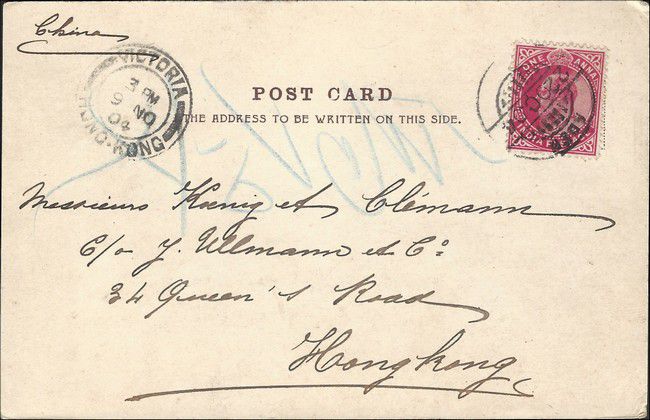 China
VICTORIA
3 PM
9 NO
04
HONG-KONG
ONE ANNA
INDIA
POST CARD
THE ADDRESS TO BE WRITTEN ON THIS SIDE.
Messieurs Kœnig et Clémann
C/o J. Ullmann et Co:
34 Queen's Road
Hongkong